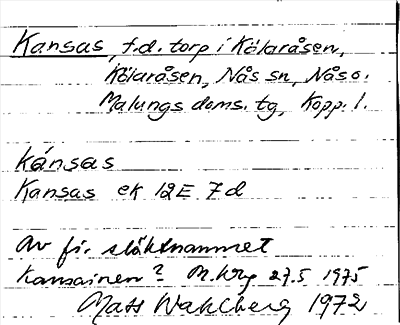 Kansas, f.d. torp i Kölaråsen,
Kölaråsen, Nås sn, Nås o.
Malungs doms. tg, Kopp. l.
kánsas
Kansas ek 12E 7d
Av fi. släktnamnet
Kansainen? M. Wng 27.5 1975
Mats Wahlberg 1972